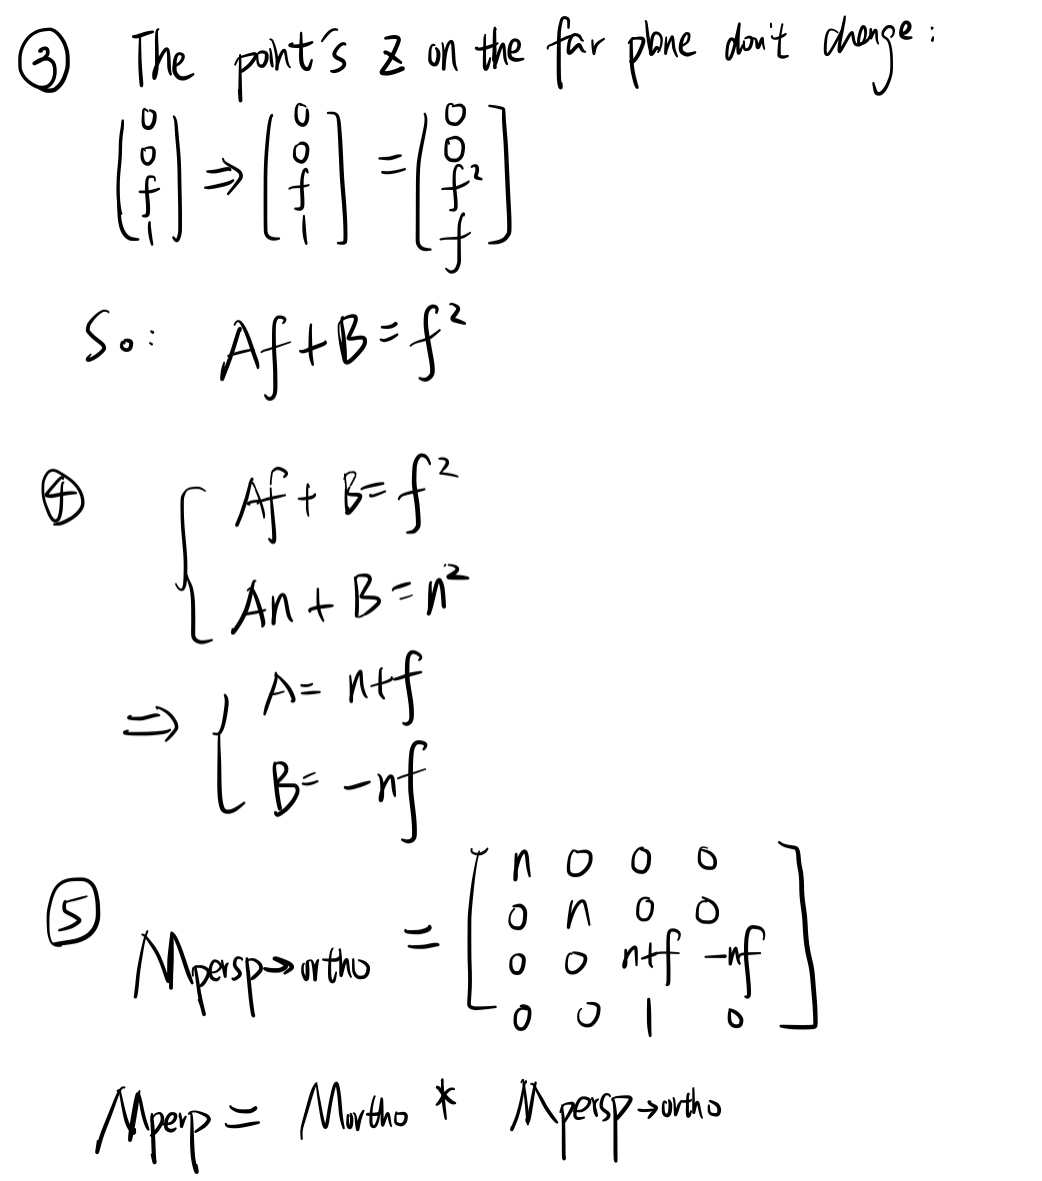 ③ The point's z on the far plane don't change:
[0 0 f 1] ⇒ [0 0 f 1] = [0 0 f² f]
So: Af + B = f²
④ { Af + B = f²
An + B = n²
⇒ { A = n+f
B = -nf
⑤ Mpersp→ortho = [n 0 0 0
0 n 0 0
0 0 n+f -nf
0 0 1 0]
Mperp = Mortho * Mpersp→ortho